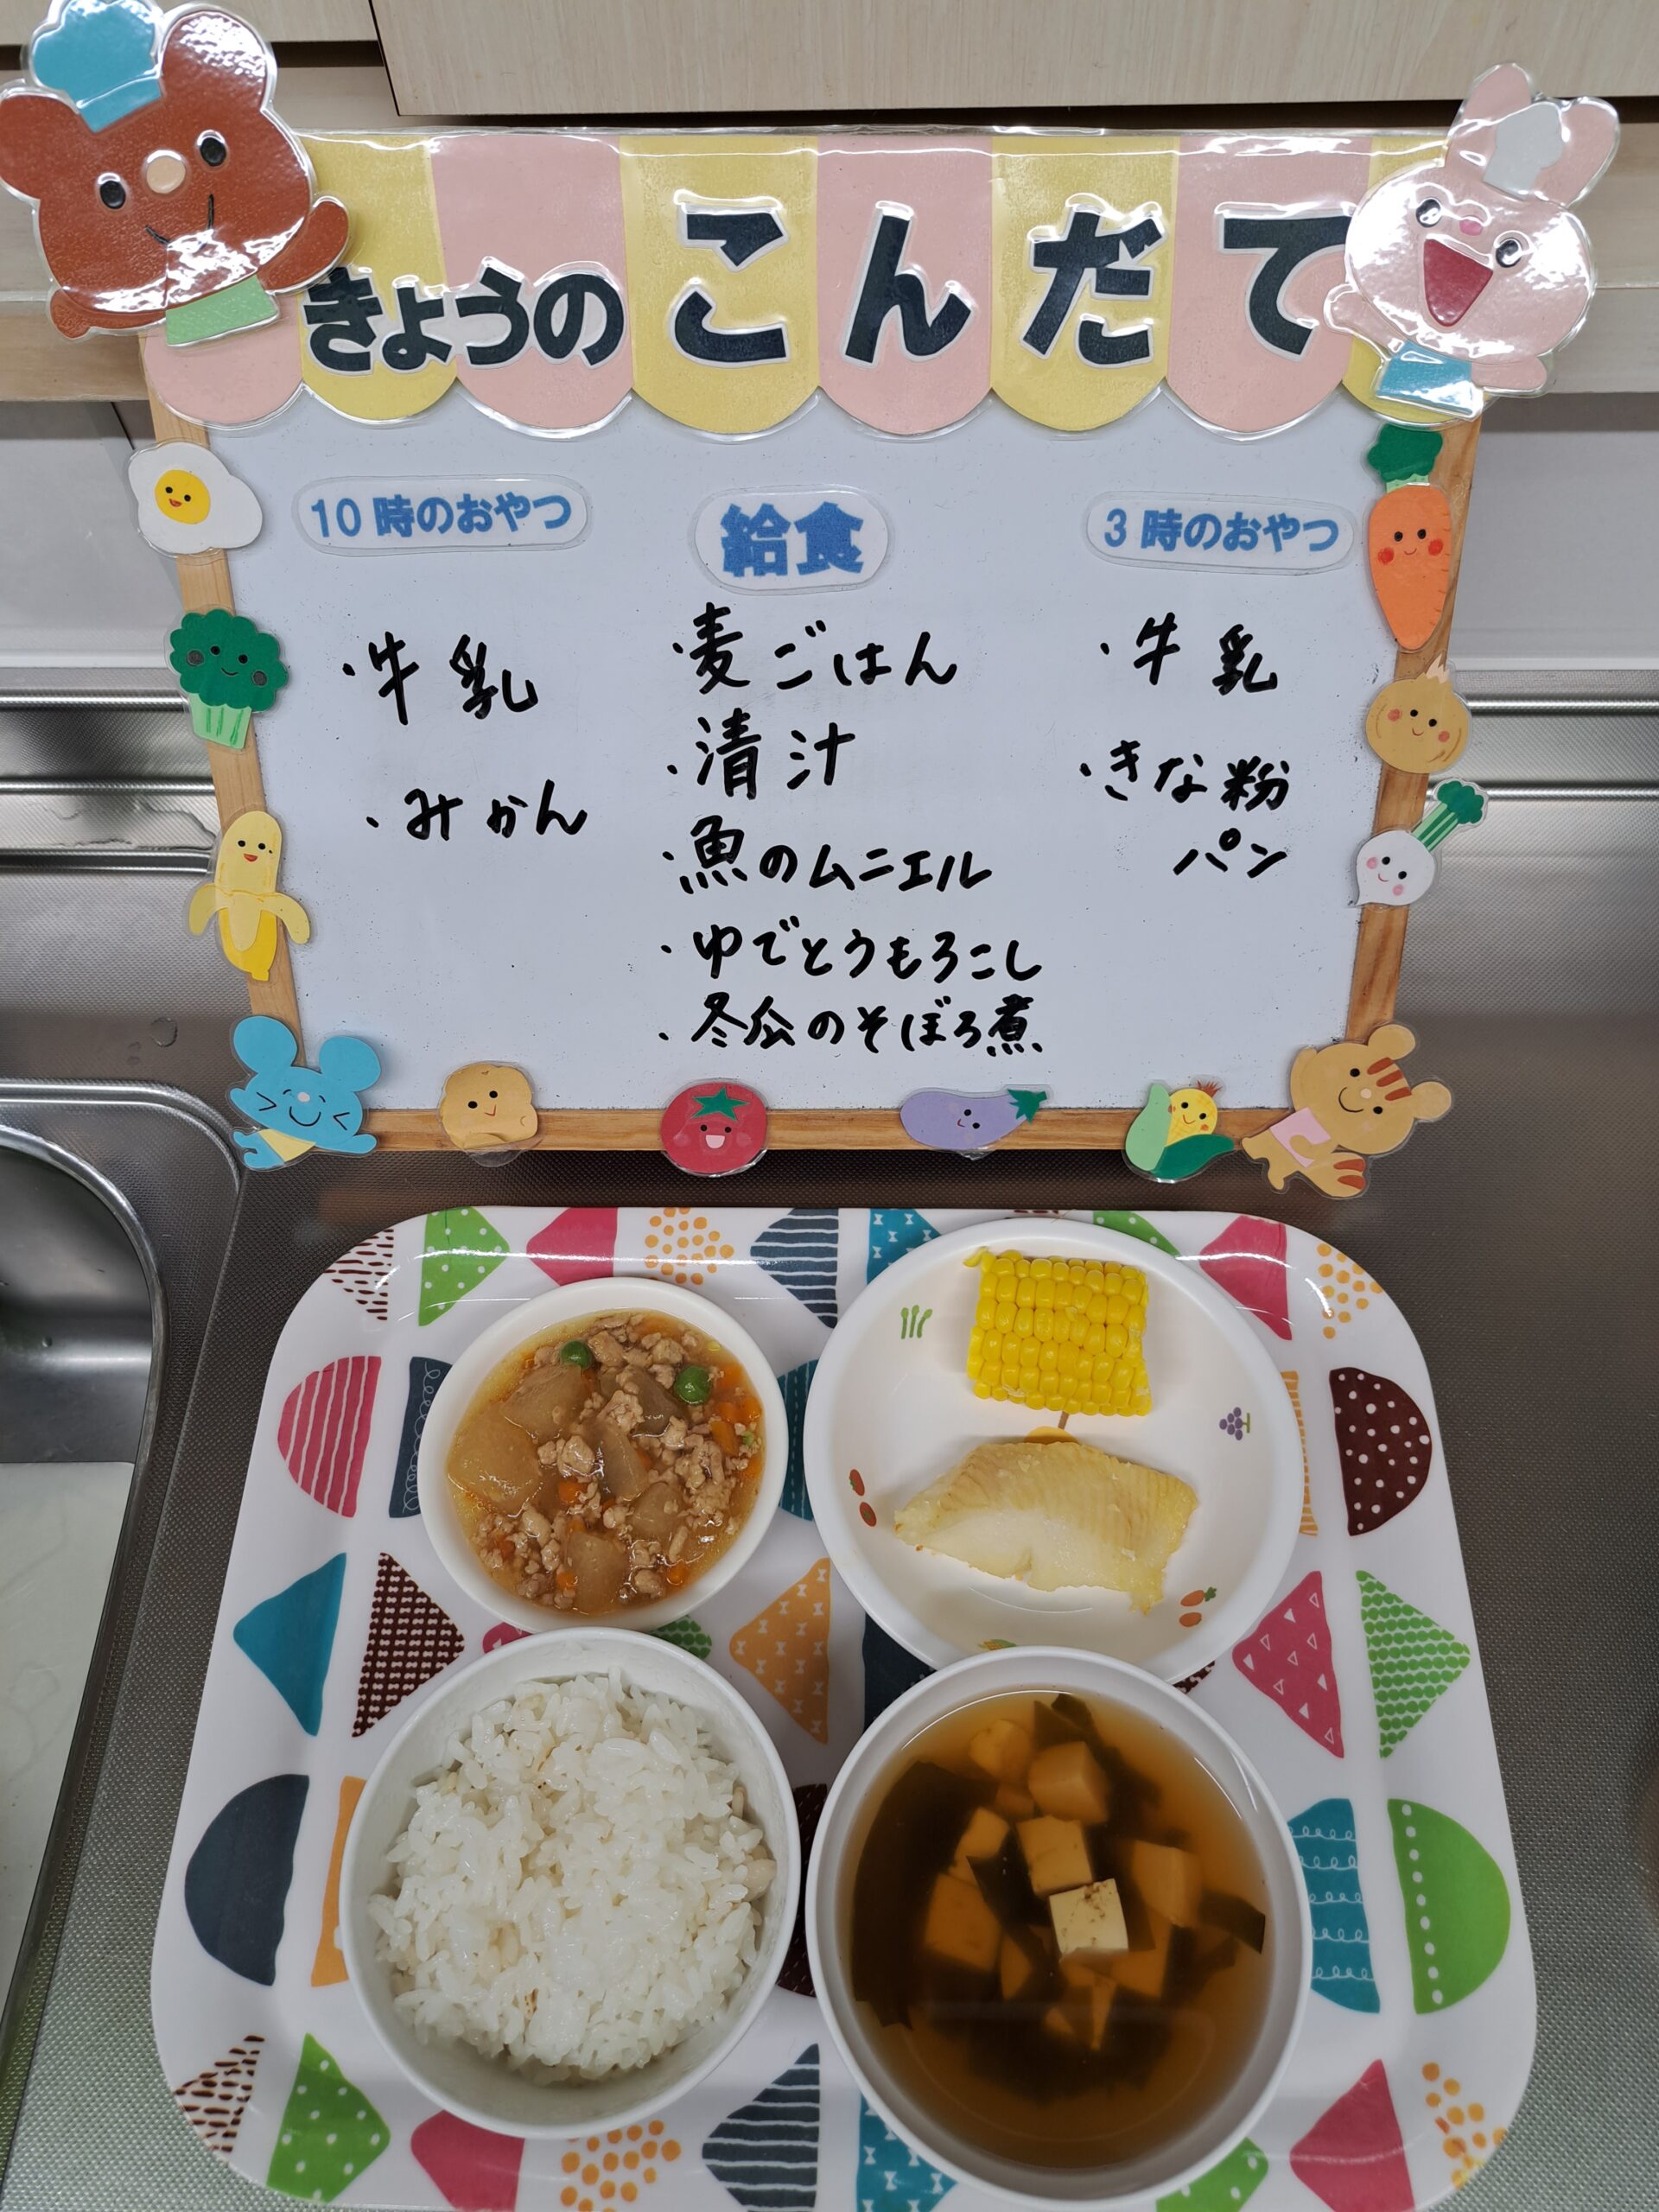 きょうのこんだて
10時のおやつ
・牛乳
・みかん
給食
・麦ごはん
・清汁
・魚のムニエル
・ゆでとうもろこし
・冬瓜のそぼろ煮
3時のおやつ
・牛乳
・きな粉
パン